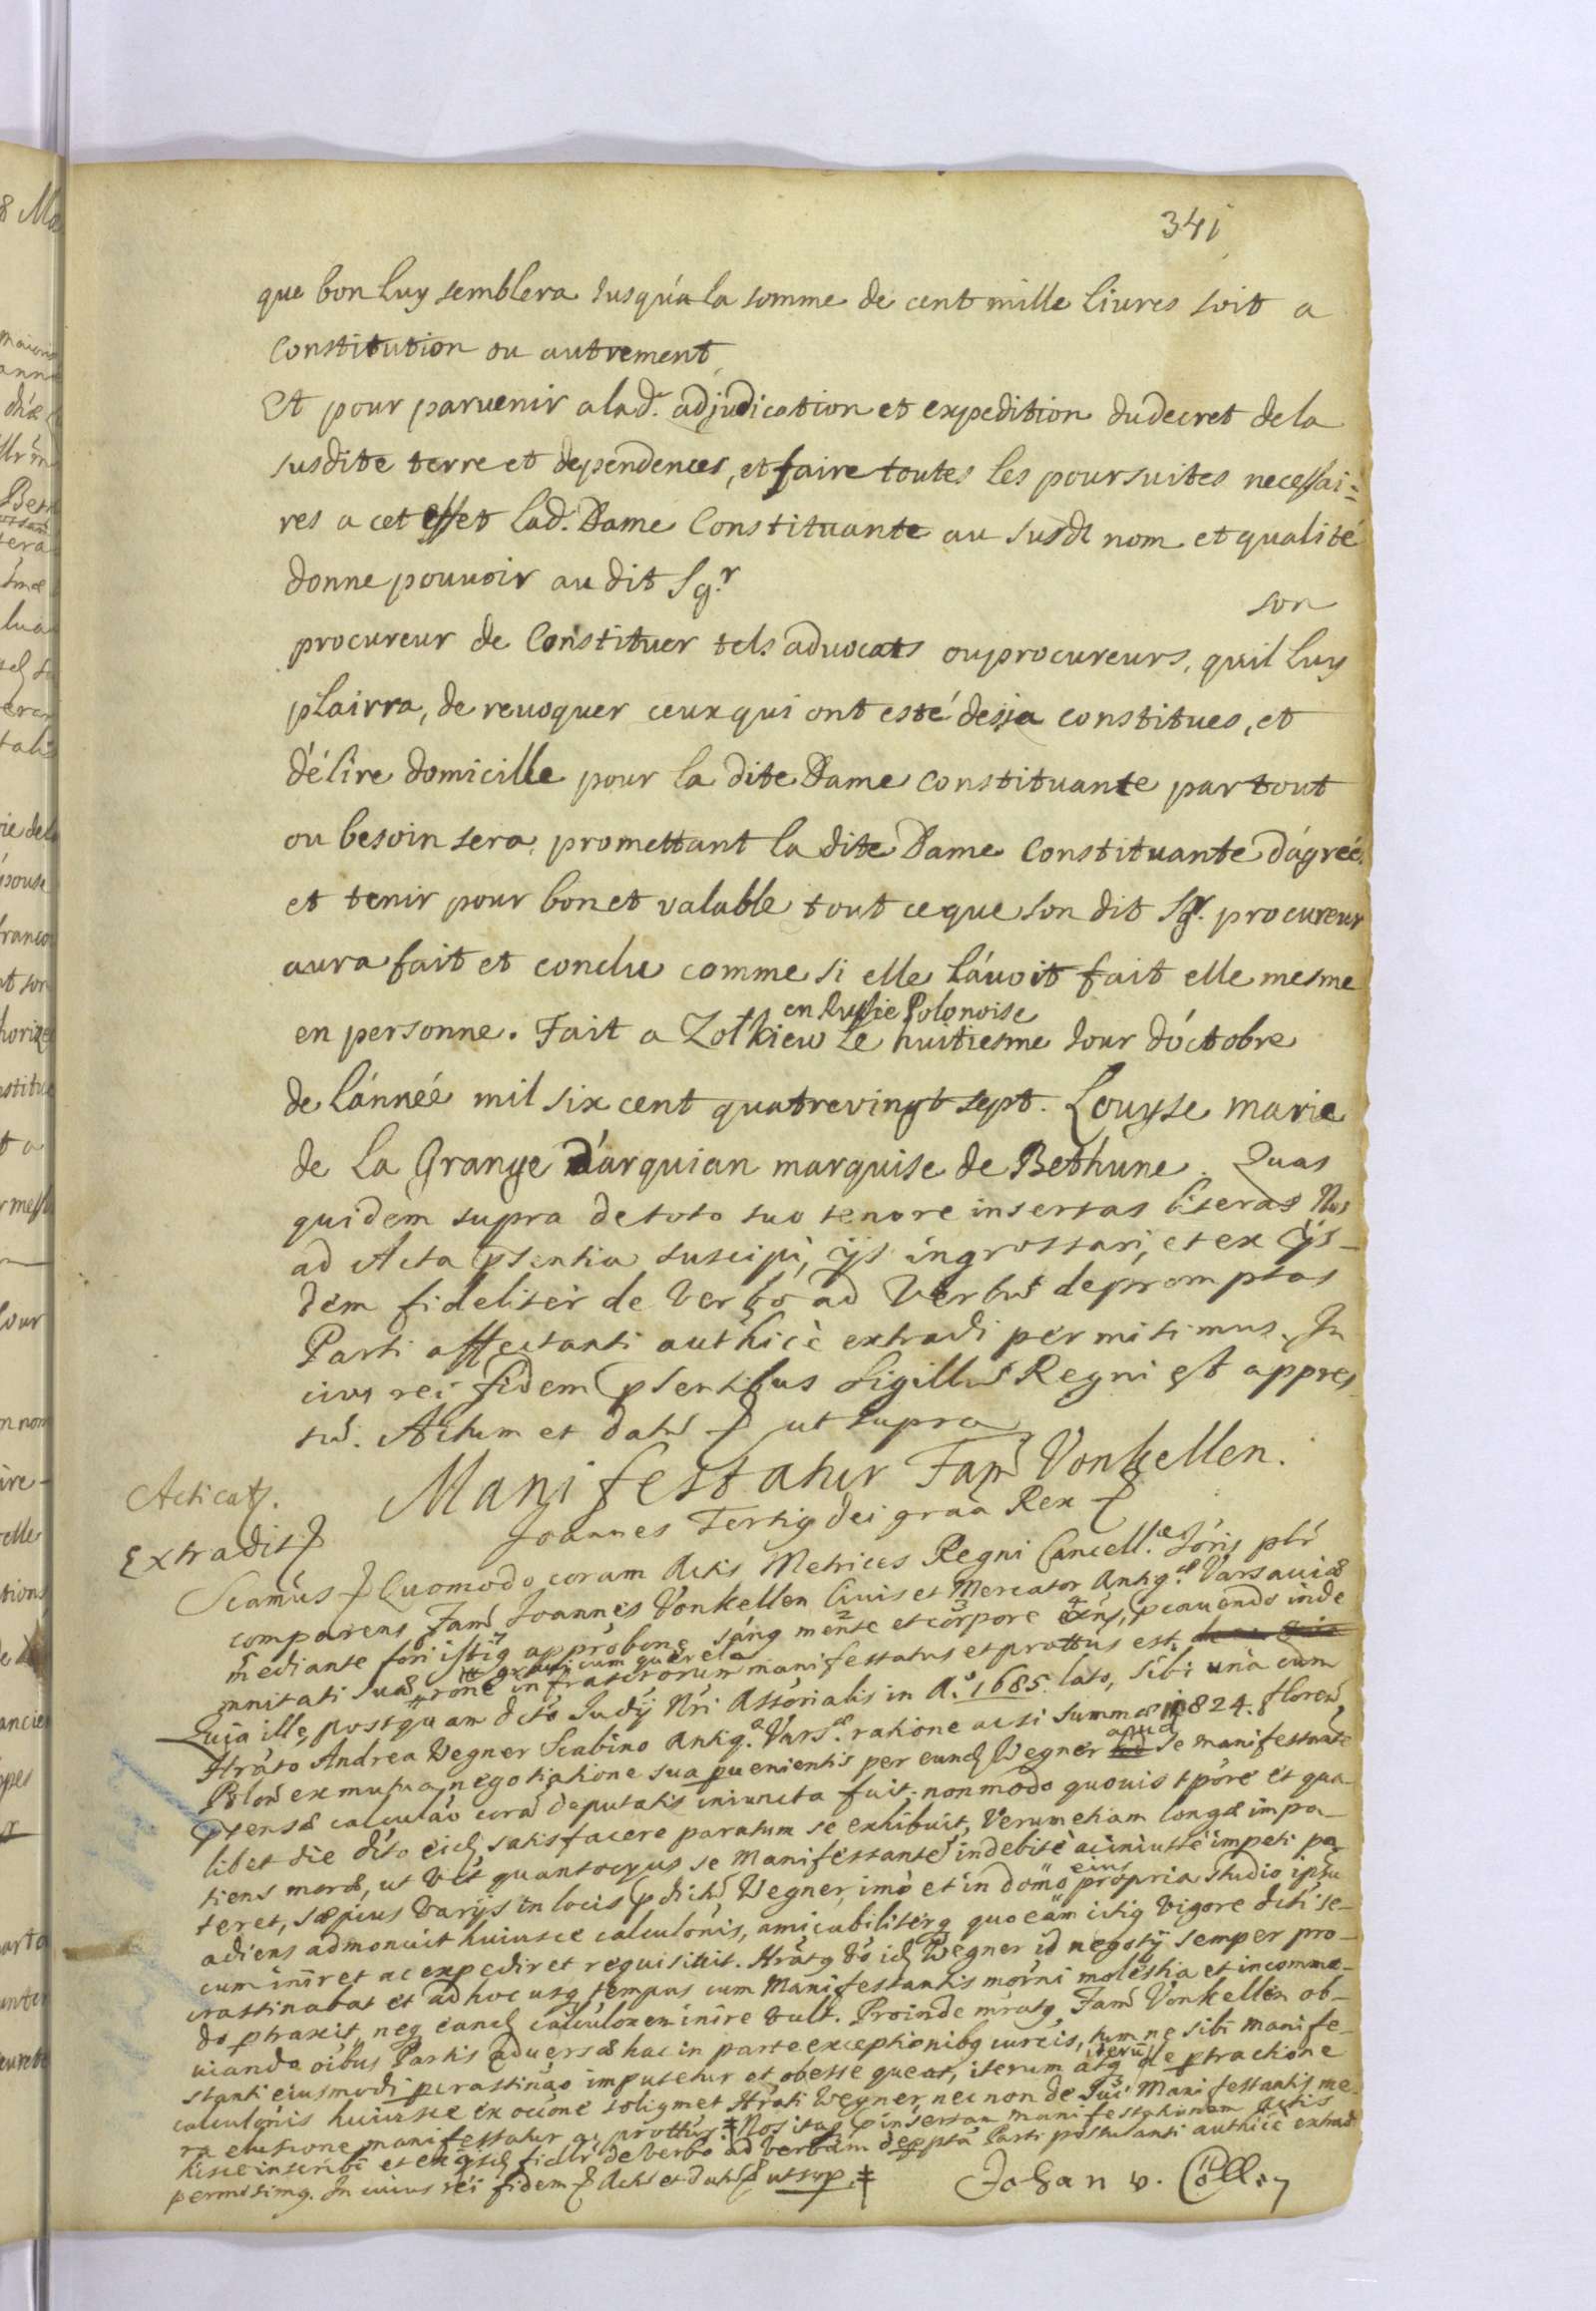 341
que bon Luy semblera Jusqu'a la somme de cent mille Liures soit a
Constitution ou autrement
Et pour paruenir a lad. adjudication et expedition du decret de la
susdite terre et dependences, et faire toutes les poursuites necessai=
res a cet effet Lad. Dame Constituante au susdt nom et qualité
donne pouuoir au dit Sg.r
son
procureur de Constituer tels aduocats ou procureurs, quil Luy
plairra, de reuoquer ceux qui ont esté desja constitues, et
d'élire domicille pour la dite Dame constituante partout
ou besoin sera, promettant la dite Dame Constituante d'agreé
et tenir pour bon et valable tout ce que son dit Sgr. procureur
aura fait et conclu comme si elle l'auoit fait elle mesme
en Russie Polonoise
en personne. Fait a Zołkiew Le huitiesme Jour d'octobre
de l'année mil six cent quatrevingt sept. Louyse marie
de La Grange d'arquian marquise de Bethune. Quas
quidem supra de toto suo tenore insertas literas Nos
ad Acta pñtia suscipi, ijs ingrossari, et ex ijs-
dem fideliter de Verbo ad Verbũ depromptas
Parti affectanti authicè extradi permitimus. In
cius rei fidem pñtibus Sigillũ Regni est appres
sũ. Actum et datũ ut supra
Manifestatur Fam̃ Vonkellen.
Acticat.
Joannes Tertiq dei graa Rex
Extradit
Scamus Quomodo coram Actis Metrices Regni Cancell. ptr
comparens Fam̃ Joannes Vonkellen Ciuis et Mercator Antiq. Varsauiæ
mediante sanq mente et corpore exñs, pcauendo inde
mnitati suæ rone infrascriptorum manifestatus et prottus est.
Quia ille, postquam dcto Judy Nri Assorialis in A. 1685 lato, sibi una cum
Hrato Andrea Wegner Scabino Antiq. Vars. ratione acti summæ 1824. floren
apud
Polon ex mutua negotiatione sua puenientis per eund Wegner se manifestante
calculao corã deputatis iniuncta fuit, non modo quouis tpore et qua
libet die dto eid satisfacere paratum se exhibuit, Verumetiam longæ impa-
tiens moræ, ut quantocyus se Manifestante indebitè ac iniustè impeti pa
eius
teret, sæpius varijs in locis pdict Wegner, imò et in domo propria studio ipsũ
adiens admonuit huiusce calculonis, amicabiliterq quo eam citiq vigore dcti se-
cum iniret ac expediret requisiuit. Hratq id Wegner id negoty semper pro-
crastinabat et ad hoc usq tempus cum Manifestantis molestia et incommo-
do ptraxit, neq eand calculonem inire vult. Proinde Fam Vonkellen ob-
uiando oibus Partis aduersæ hac in parte exceptionibq cureis, tum ne sibi manife-
stanti eiusmodi pcrastinao imputetur et obesse queat, iterum atq de ptractione
calculonis huiusce ex ocione soliqmet Hrati Wegner, nec non de Manifestantis me
ra manifestatur ac prottur. Nos itaq pinsertam manifestationem Actis
hisce inscribi et ex ijsd fidlr de Verbo ad Verbum depptã Parti postulanti authicè extradi
permisimq. In cuius rei fidem Actũ et datũ ut sup.
Johan v. Cöllen